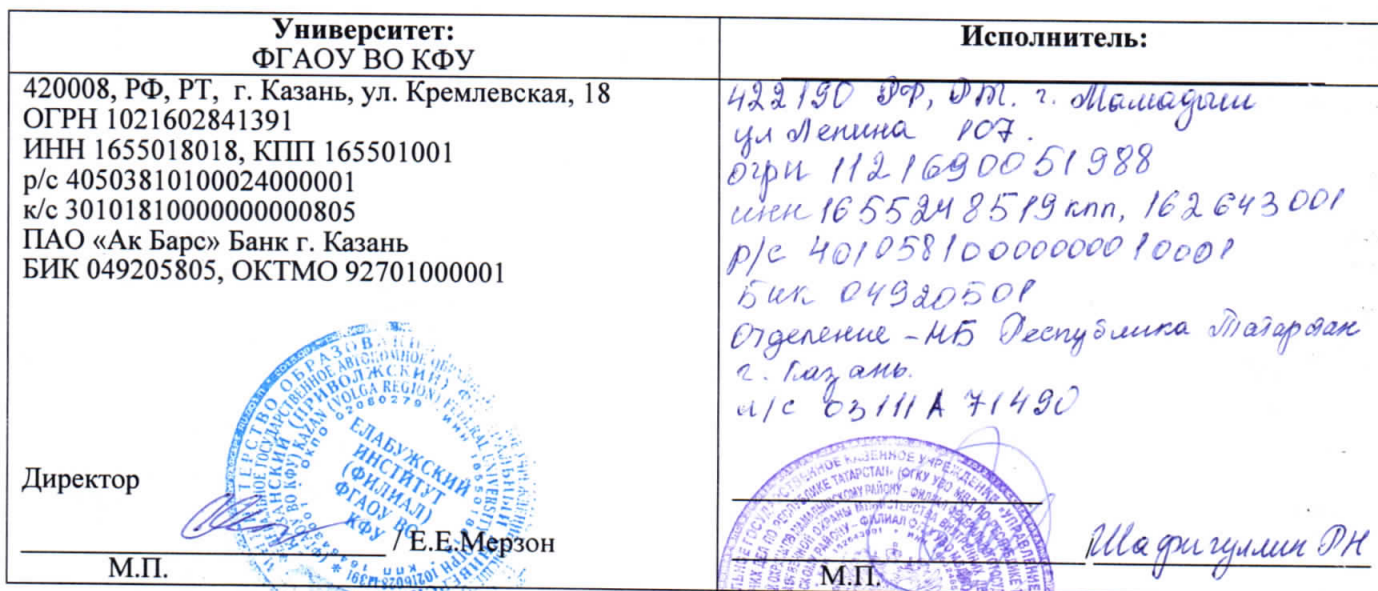 Университет:
ФГАОУ ВО КФУ
420008, РФ, РТ, г. Казань, ул. Кремлевская, 18
ОГРН 1021602841391
ИНН 1655018018, КПП 165501001
р/с 40503810100024000001
к/с 30101810000000000805
ПАО «Ак Барс» Банк г. Казань
БИК 049205805, ОКТМО 92701000001
Директор
/ Е.Е.Мерзон
М.П.
ЕЛАБУЖСКИЙ
ИНСТИТУТ
(ФИЛИАЛ)
ФГАОУ ВО
КФУ
Исполнитель:
422190 РФ, РТ. г. Мамадыш
ул Ленина 107.
огрн 1121690051988
инн 1655248519 кпп, 162643001
р/с 40105810000000010001
Бик 04920501
Отделение - НБ Республика Татарстан
г. Казань.
л/с 03111А71490
Шафигуллин РН
М.П.